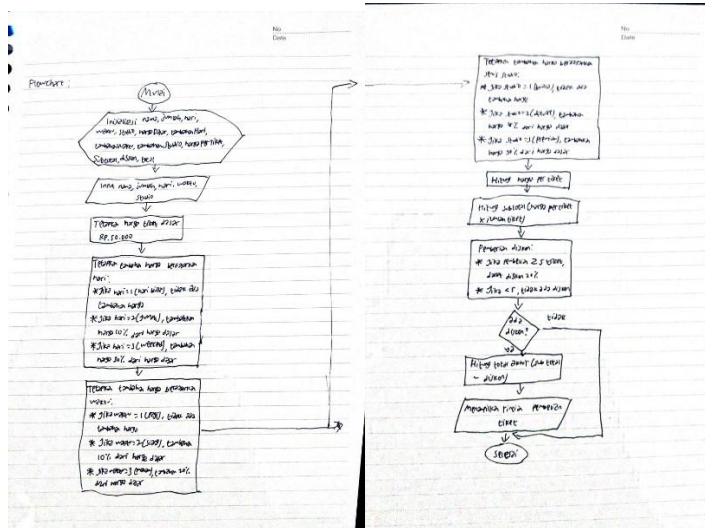 No
Date
Flowchart :
Mulai
Inisialisasi nama, jumlah, hari,
waktu, studio, harga dasar, tambahan hari,
tambahan waktu, tambahan studio, harga per tiket,
subtotal, diskon,
Input nama, jumlah, hari, waktu,
studio
Tetapkan harga tiket dasar
RP. 50.000
Tetapkan tambahan harga berdasarkan
hari:
* Jika hari = 1 (hari biasa), tidak ada
tambahan harga
* Jika hari = 2 (jumat), tambahan
harga 10% dari harga dasar
* Jika hari = 3 (weekend), tambahan
harga 30% dari harga dasar
Tetapkan tambahan harga berdasarkan
waktu:
* Jika waktu = 1 (pagi), tidak ada
tambahan harga
* Jika waktu = 2 (siang), tambahan
10% dari harga dasar
* Jika waktu = 3 (malam), tambahan 20%
dari harga dasar
No
Date
Tetapkan tambahan harga berdasarkan
studio:
* Jika studio = 1 (), tidak ada
tambahan harga
* Jika studio = 2 (), tambahan
harga dari harga dasar
* Jika studio = 3 (), tambahan
harga 50% dari harga dasar
Hitung harga per tiket
Hitung subtotal (harga per tiket
x jumlah tiket)
Pemberian diskon:
* Jika pembelian ≥ 5 tiket,
dapat diskon 20%
* Jika < 5, tidak ada diskon
ada
diskon?
tidak
ya
Hitung total (subtotal
- diskon)
Menampilkan rincian pembelian
tiket
selesai